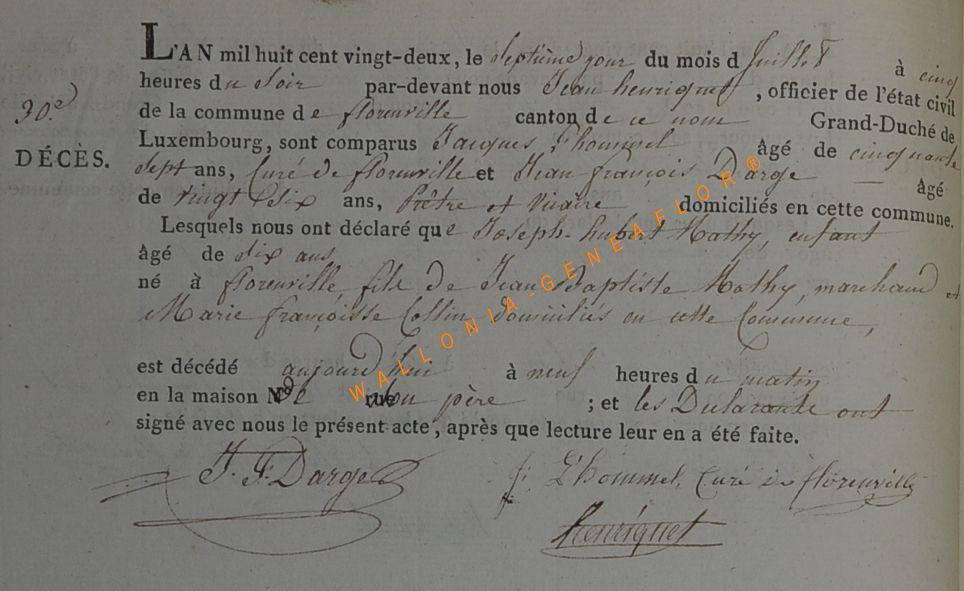 L'AN mil huit cent vingt-deux, le septième jour du mois d Juillet à cinq
heures du Soir par-devant nous Jean henriquet, officier de l'état civil
30.e
de la commune de florenville canton de ce nom Grand-Duché de
DÉCÈS.
Luxembourg, sont comparus Jacques L'hommel Âgé de cinquante
sept ans, Curé de florenville et Jean françois Darge — Âgé
de vingt Six ans, Prêtre et Vicaire domiciliés en cette commune.
Lesquels nous ont déclaré que Joseph-hubert Mathy, enfant
âgé de dix ans
né à florenville fils de Jean Baptiste Mathy, marchand et
Marie françoisse Collin domiciliés en cette Commune,
est décédé aujourd'hui à neuf heures du matin
en la maison de son père ; et les Dularante ont
signé avec nous le présent acte, après que lecture leur en a été faite.
J. F. Darge J. L'hommel, Curé de florenville
henriquet
WALLONIA-GENEAFLOR®